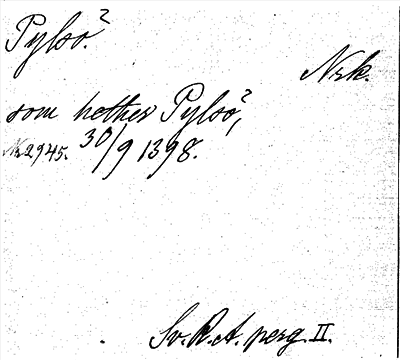 Pylsö.²
Nrk.
som hether Pylsö²,
№ 2945. 30/9 1398.
Sv. R. A. perg. II.